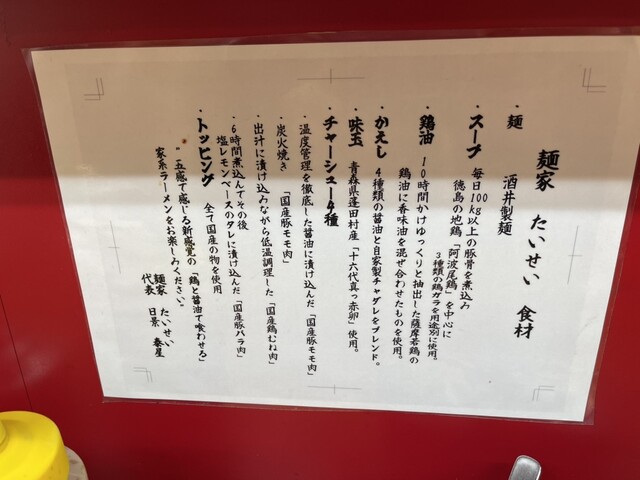 麺家 たいせい 食材
・麺 酒井製麺
・スープ 毎日100kg以上の豚骨を煮込み
徳島の地鶏「阿波尾鶏」を中心に
3種類の鶏ガラを用途別に使用。
・鶏油 10時間かけゆっくりと抽出した薩摩若鶏の
鶏油に香味油を混ぜ合わせたものを使用。
・かえし 4種類の醤油と自家製チャダレをブレンド。
・味玉 青森県蓬田村産「十六代真っ赤卵」使用。
・チャーシュー4種
・温度管理を徹底した醤油に漬け込んだ「国産豚モモ肉」
・炭火焼き 「国産豚モモ肉」
・出汁に漬け込みながら低温調理した「国産鶏むね肉」
・6時間煮込んでその後
塩レモンベースのタレに漬け込んだ「国産豚バラ肉」
・トッピング 全て国産の物を使用
"五感で感じる新感覚の「鶏と醤油で喰わせる」
家系ラーメンをお楽しみください。"
麺家 たいせい
代表 日景 泰星